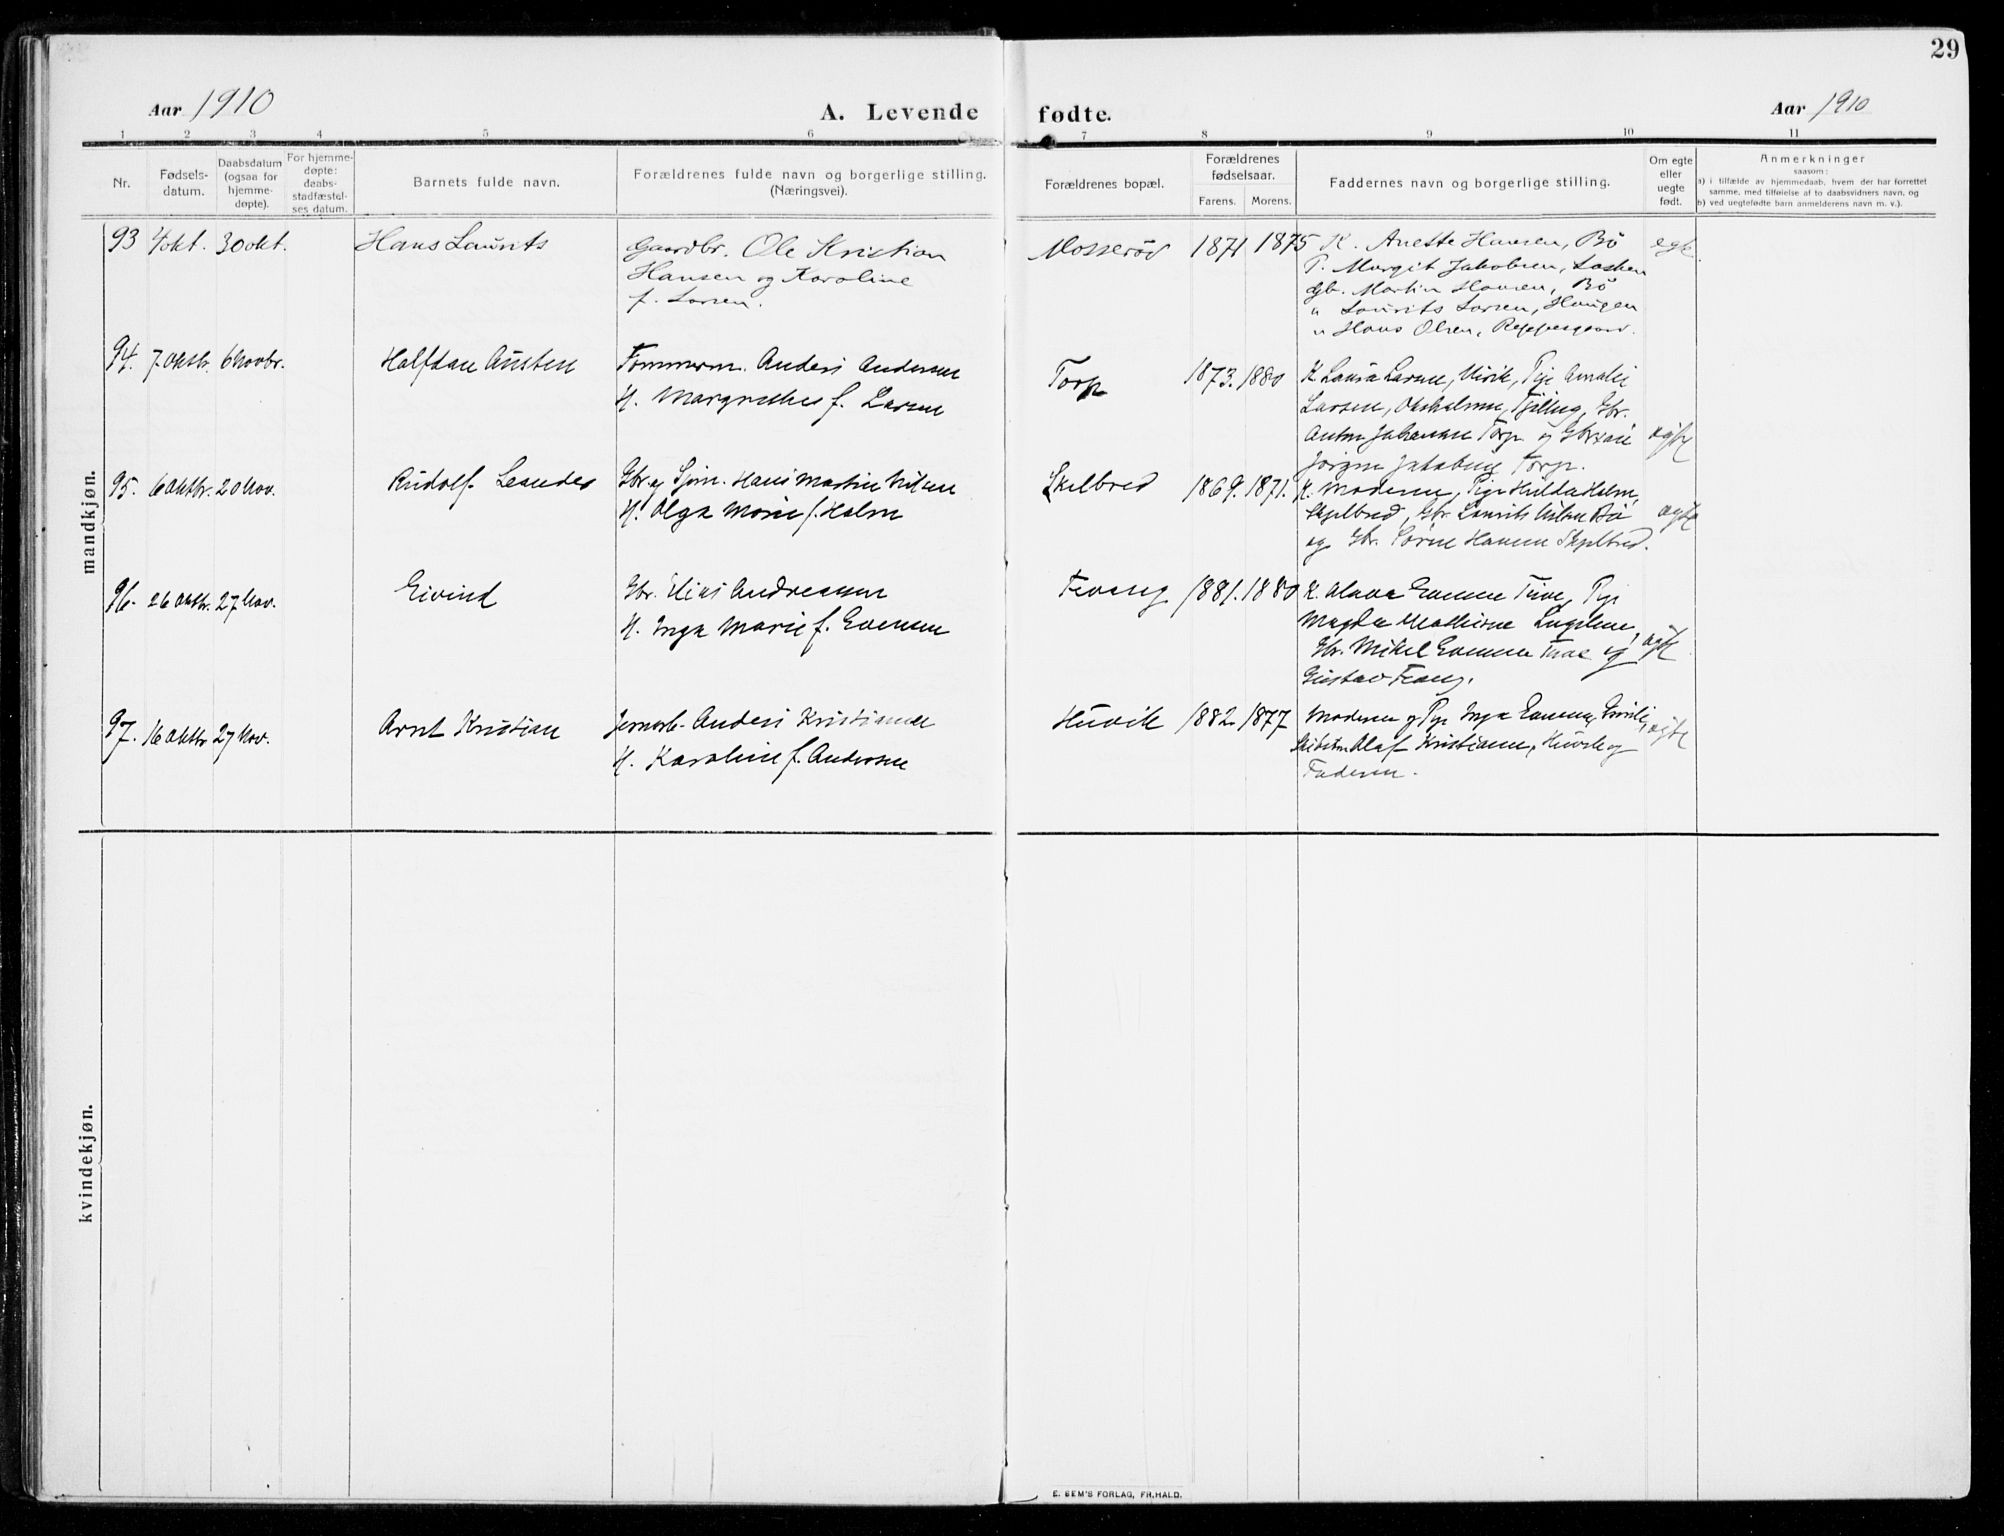 29
Aar 1910
A. Levende fødte.
Aar 1910
1 2 3 4 5 6 7 8 9 10 11
Nr.
Fødsels-
datum.
Daabsdatum
(ogsaa for
hjemme-
døpte).
For hjemme-
døpte:
daabs-
stadfæstel-
ses datum.
Barnets fulde navn.
Forældrenes fulde navn og borgerlige stilling.
(Næringsvei).
Forældrenes bopæl.
Forældrenes
fødselsaar.
Farens. Morens.
Faddernes navn og borgerlige stilling.
Om egte
eller
uegte
født.
Anmerkninger
saasom:
a) i tilfælde av hjemmedaab, hvem der har forrettet
samme, med tilføielse af to daabsvidners navn, og
b) ved uegtefødte barn anmelderens navn m. v.).
mandkjøn.
93 4 okt. 30 okt. Hans Laurits
Gaardbr. Ole Kristian
Hansen og Karoline
f. Larsen.
Mosserød 1871 1875
K. Anette Hansen, Bø
P. Margit Jakobsen,
Gb. Martin Hansen, Bø
" Laurits Larsen, Haugen
" Hans Olsen,
egte
94. 7. oktbr. 6 Novbr. Halfdan Austen
Tømmerm. Anders Andersen
H. Margrethes f. Larsen
Torp 1873. 1880
K. Laura Larsen, Pige Amalie
Larsen, Gbr.
Anton Johansen Torp og
Torp.
ægte
95. 6 oktbr. 20 Nov. Rudolf Leander
Gbr. og Sjøm. Hans Martin Nilsen
H. Olga Marie f. Holm
Skelbred 1869. 1871.
K. Moderen, Pige Hulda Holm,
Skjelbred, Gbr. Laurits Nilsen Bø
og Gbr. Søren Hansen Skjelbred.
ægte
96. 26 oktbr. 27 Nov. Eivind
Gbr. Elias Andreassen
H. Inga Marie f. Evensen
Fevang 1881. 1880
K. Evensen Pige
Magda
Gbr. Mikel Evensen og
Gustav Fevang.
ægte
97. 16 oktbr 27 Nov. Arnt Kristian
Anders Kristiansen
H. Karoline f. Andersen
Huvik 1882. 1877
Moderen og Pige Inga
Olaf Kristiansen, Huvik og
Faderen.
ægte
kvindekjøn.
E. SEM'S FORLAG, FR.HALD.